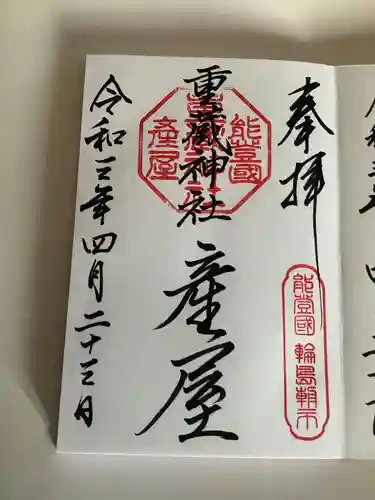 奉拝
能登國 輪島朝市
重蔵神社
産屋
能登國
産屋
令和三年四月二十三日